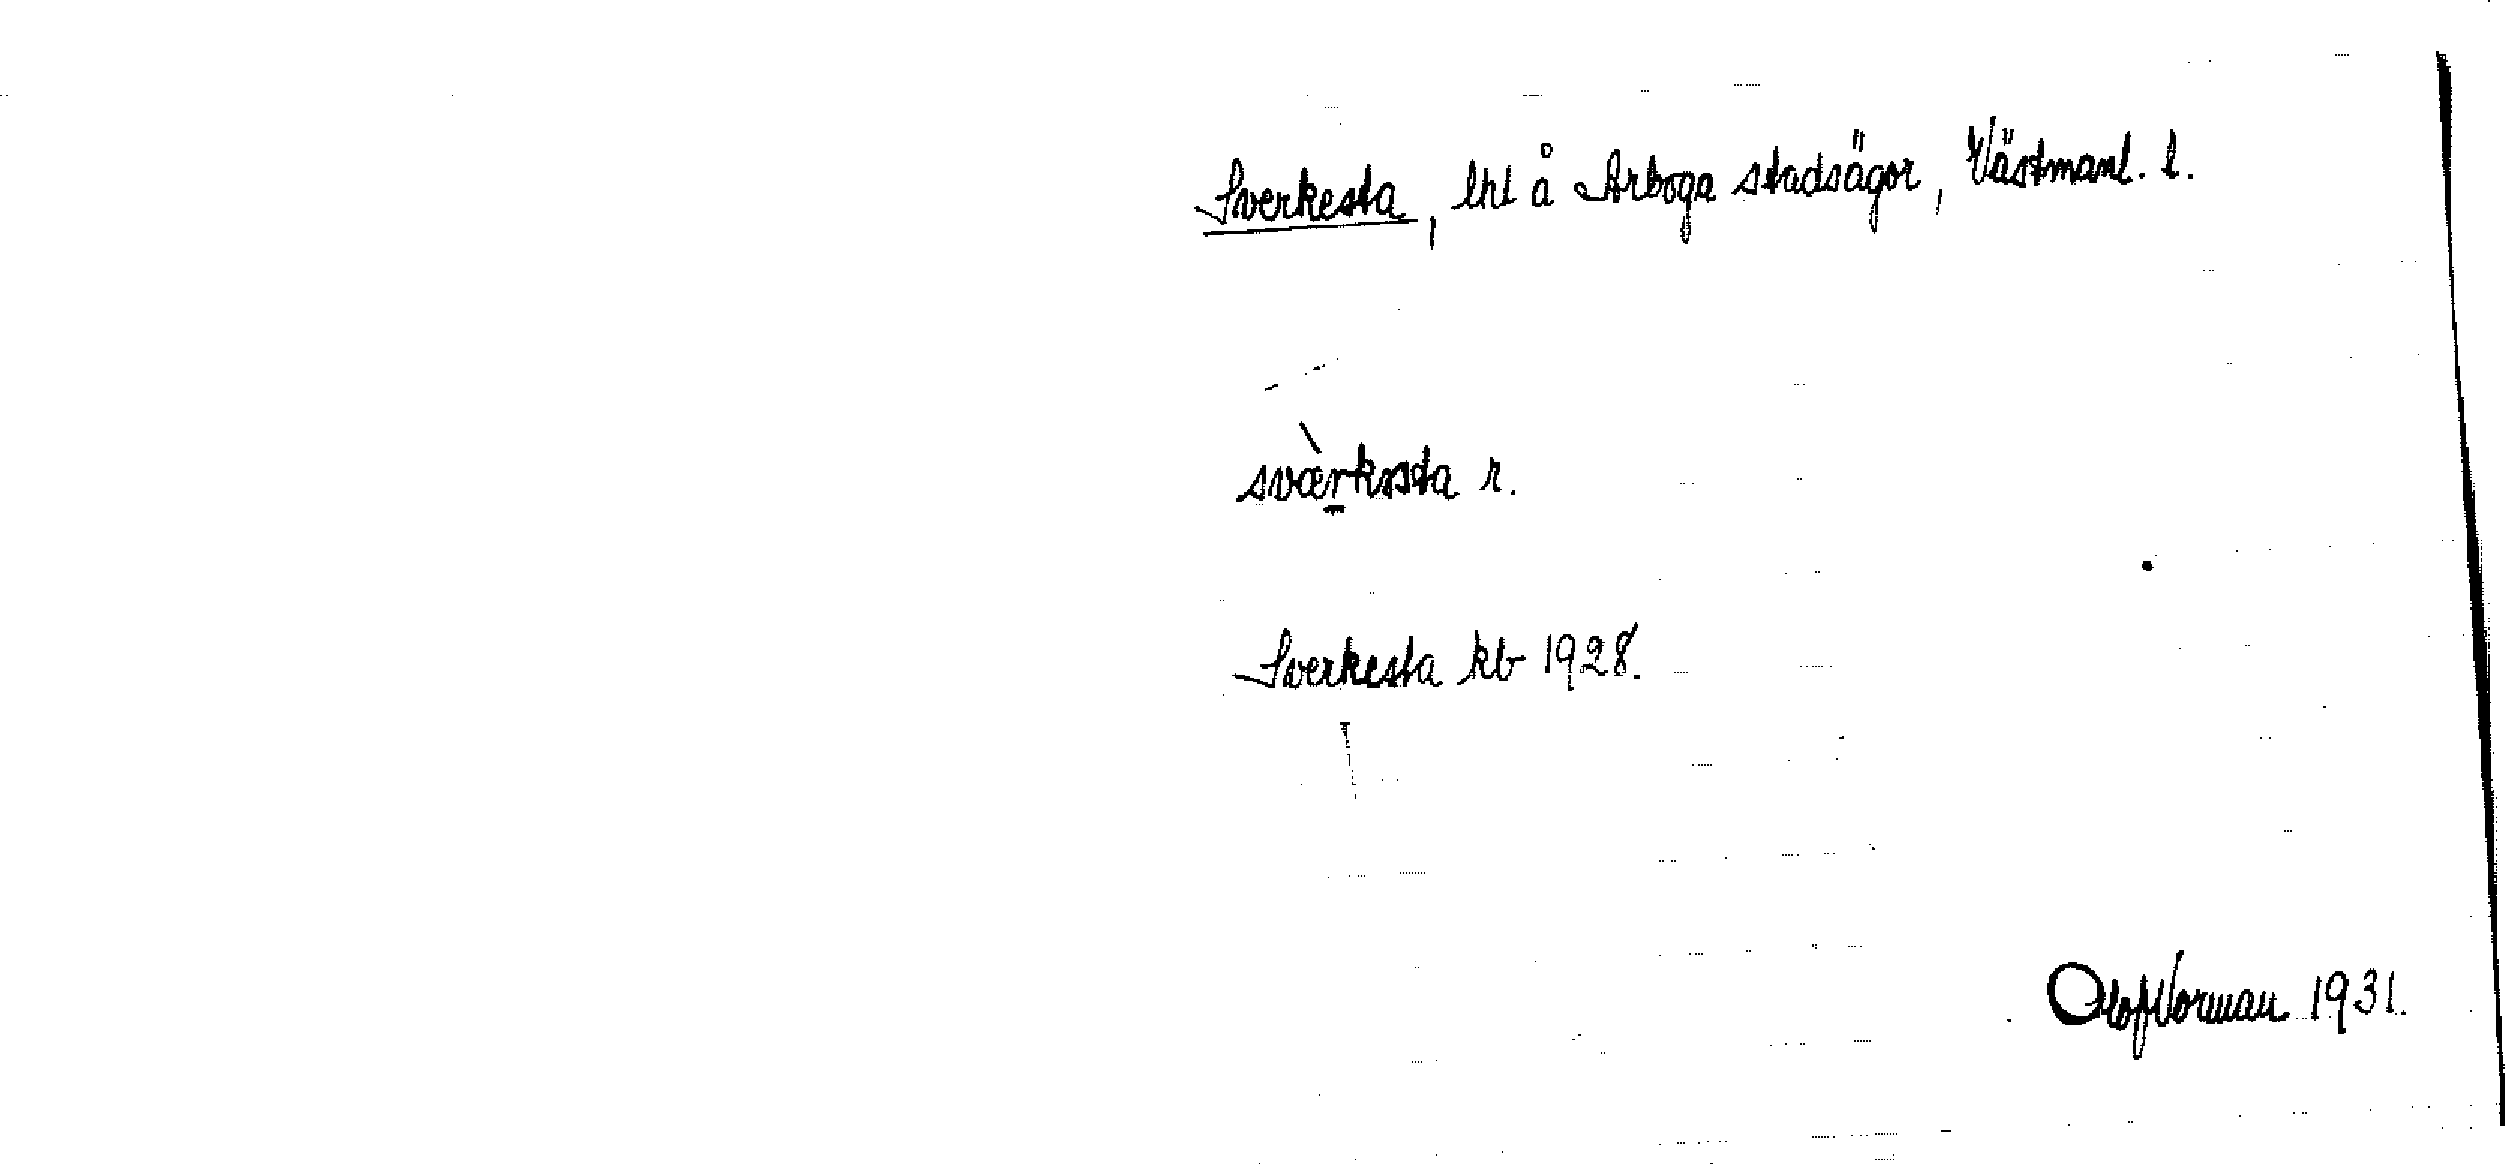 Sverkesta, lht å Arboga stadsägor, Västmanl. l.
svær̠kəsta r.
Sverkesta kb 1928.
Olof Norman 1931.